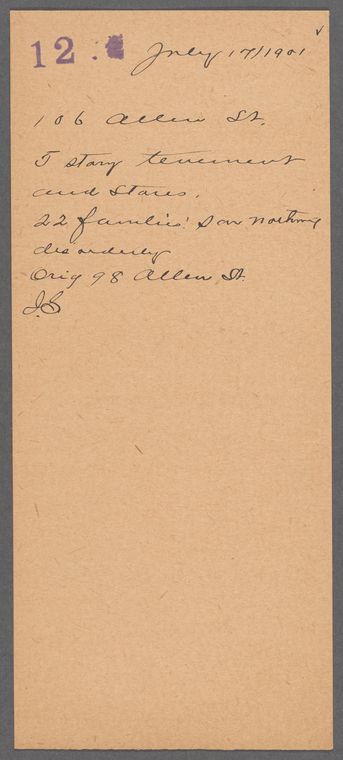 12.
July 17/1901
106 Allen St.
5 story tenement
and Stores.
22 families. Saw nothing
disorderly
Orig 98 Allen St.